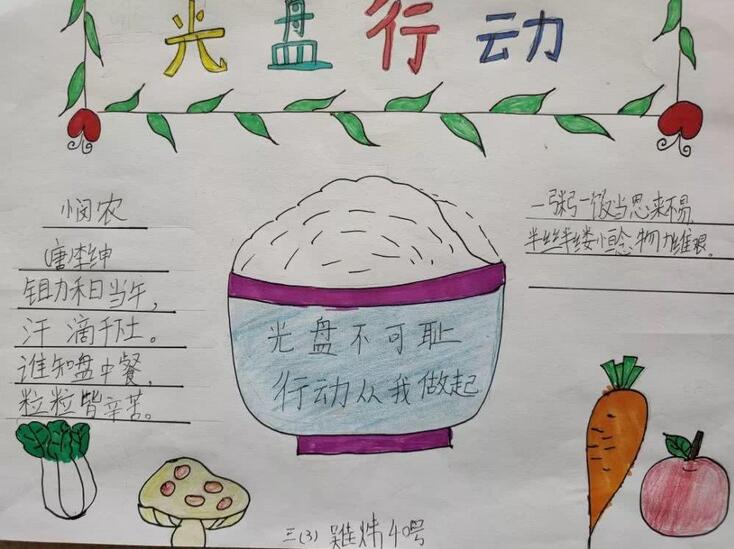 光盘行动
悯农
唐李绅
锄禾日当午,
汗滴禾下土。
谁知盘中餐,
粒粒皆辛苦。
光盘不可耻
行动从我做起
一粥一饭当思来不易
半丝半缕恒念物力维艰。
三(3) 40号